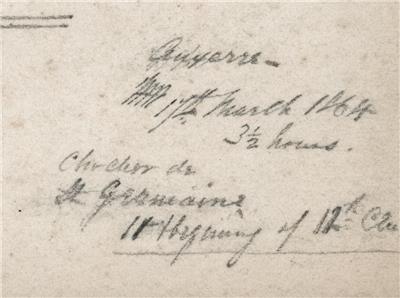 Auxerre -
17th March 1864
3½ hours.
Clocher de
St Germaine
11th begining of 12th Ce